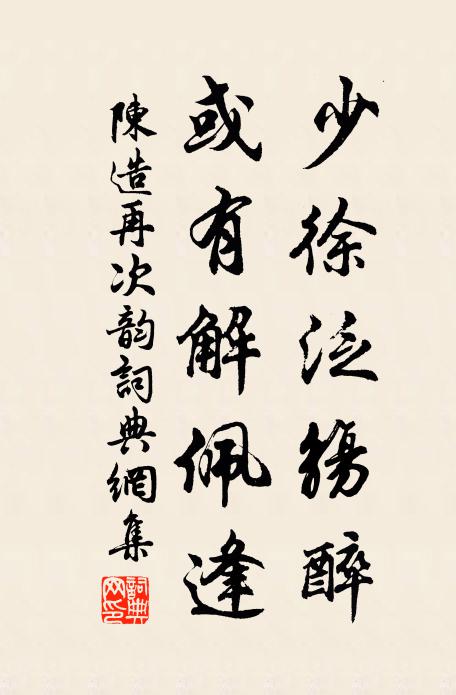 少徐泛觴醉
或有解佩逢
陳造再次韵詞典網集
詞典網印